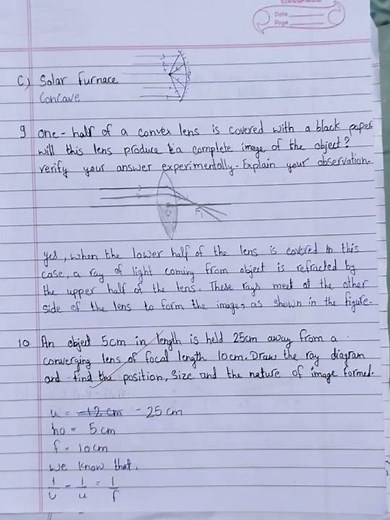 Date
Page
C) Solar Furnace
Concave
9 One-half of a convex lens is covered with a black paper
will this lens produce a complete image of the object?
verify your answer experimentally. Explain your observation
yes, when the lower half of the lens is covered in this
case, a ray of light coming from object is refracted by
the upper half of the lens. These rays meet at the other
side of the lens to form the image, as shown in the figure.
10 An object 5cm in length is held 25cm away from a
converging lens of focal length 10cm. Draw the ray diagram
and find the position, size and the nature of image formed.
u = -12 cm - 25 cm
ho = 5 cm
f = 10 cm
we know that,
1/v - 1/u = 1/f